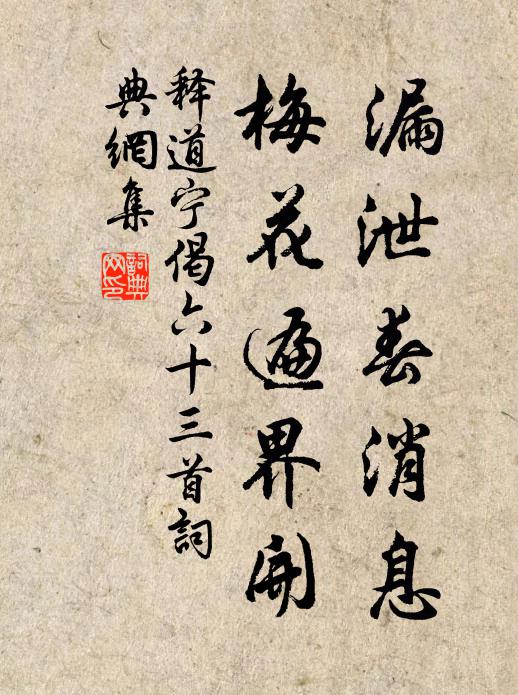 漏泄春消息
梅花遍界開
释道宁偈六十三首詞
典網集
詞典
网印